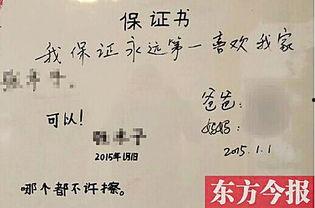 保证书
我保证永远第一喜欢我家
可以!
爸爸:
妈妈:
2015年1月1日
2015.1.1
哪个都不许擦。
东方今报